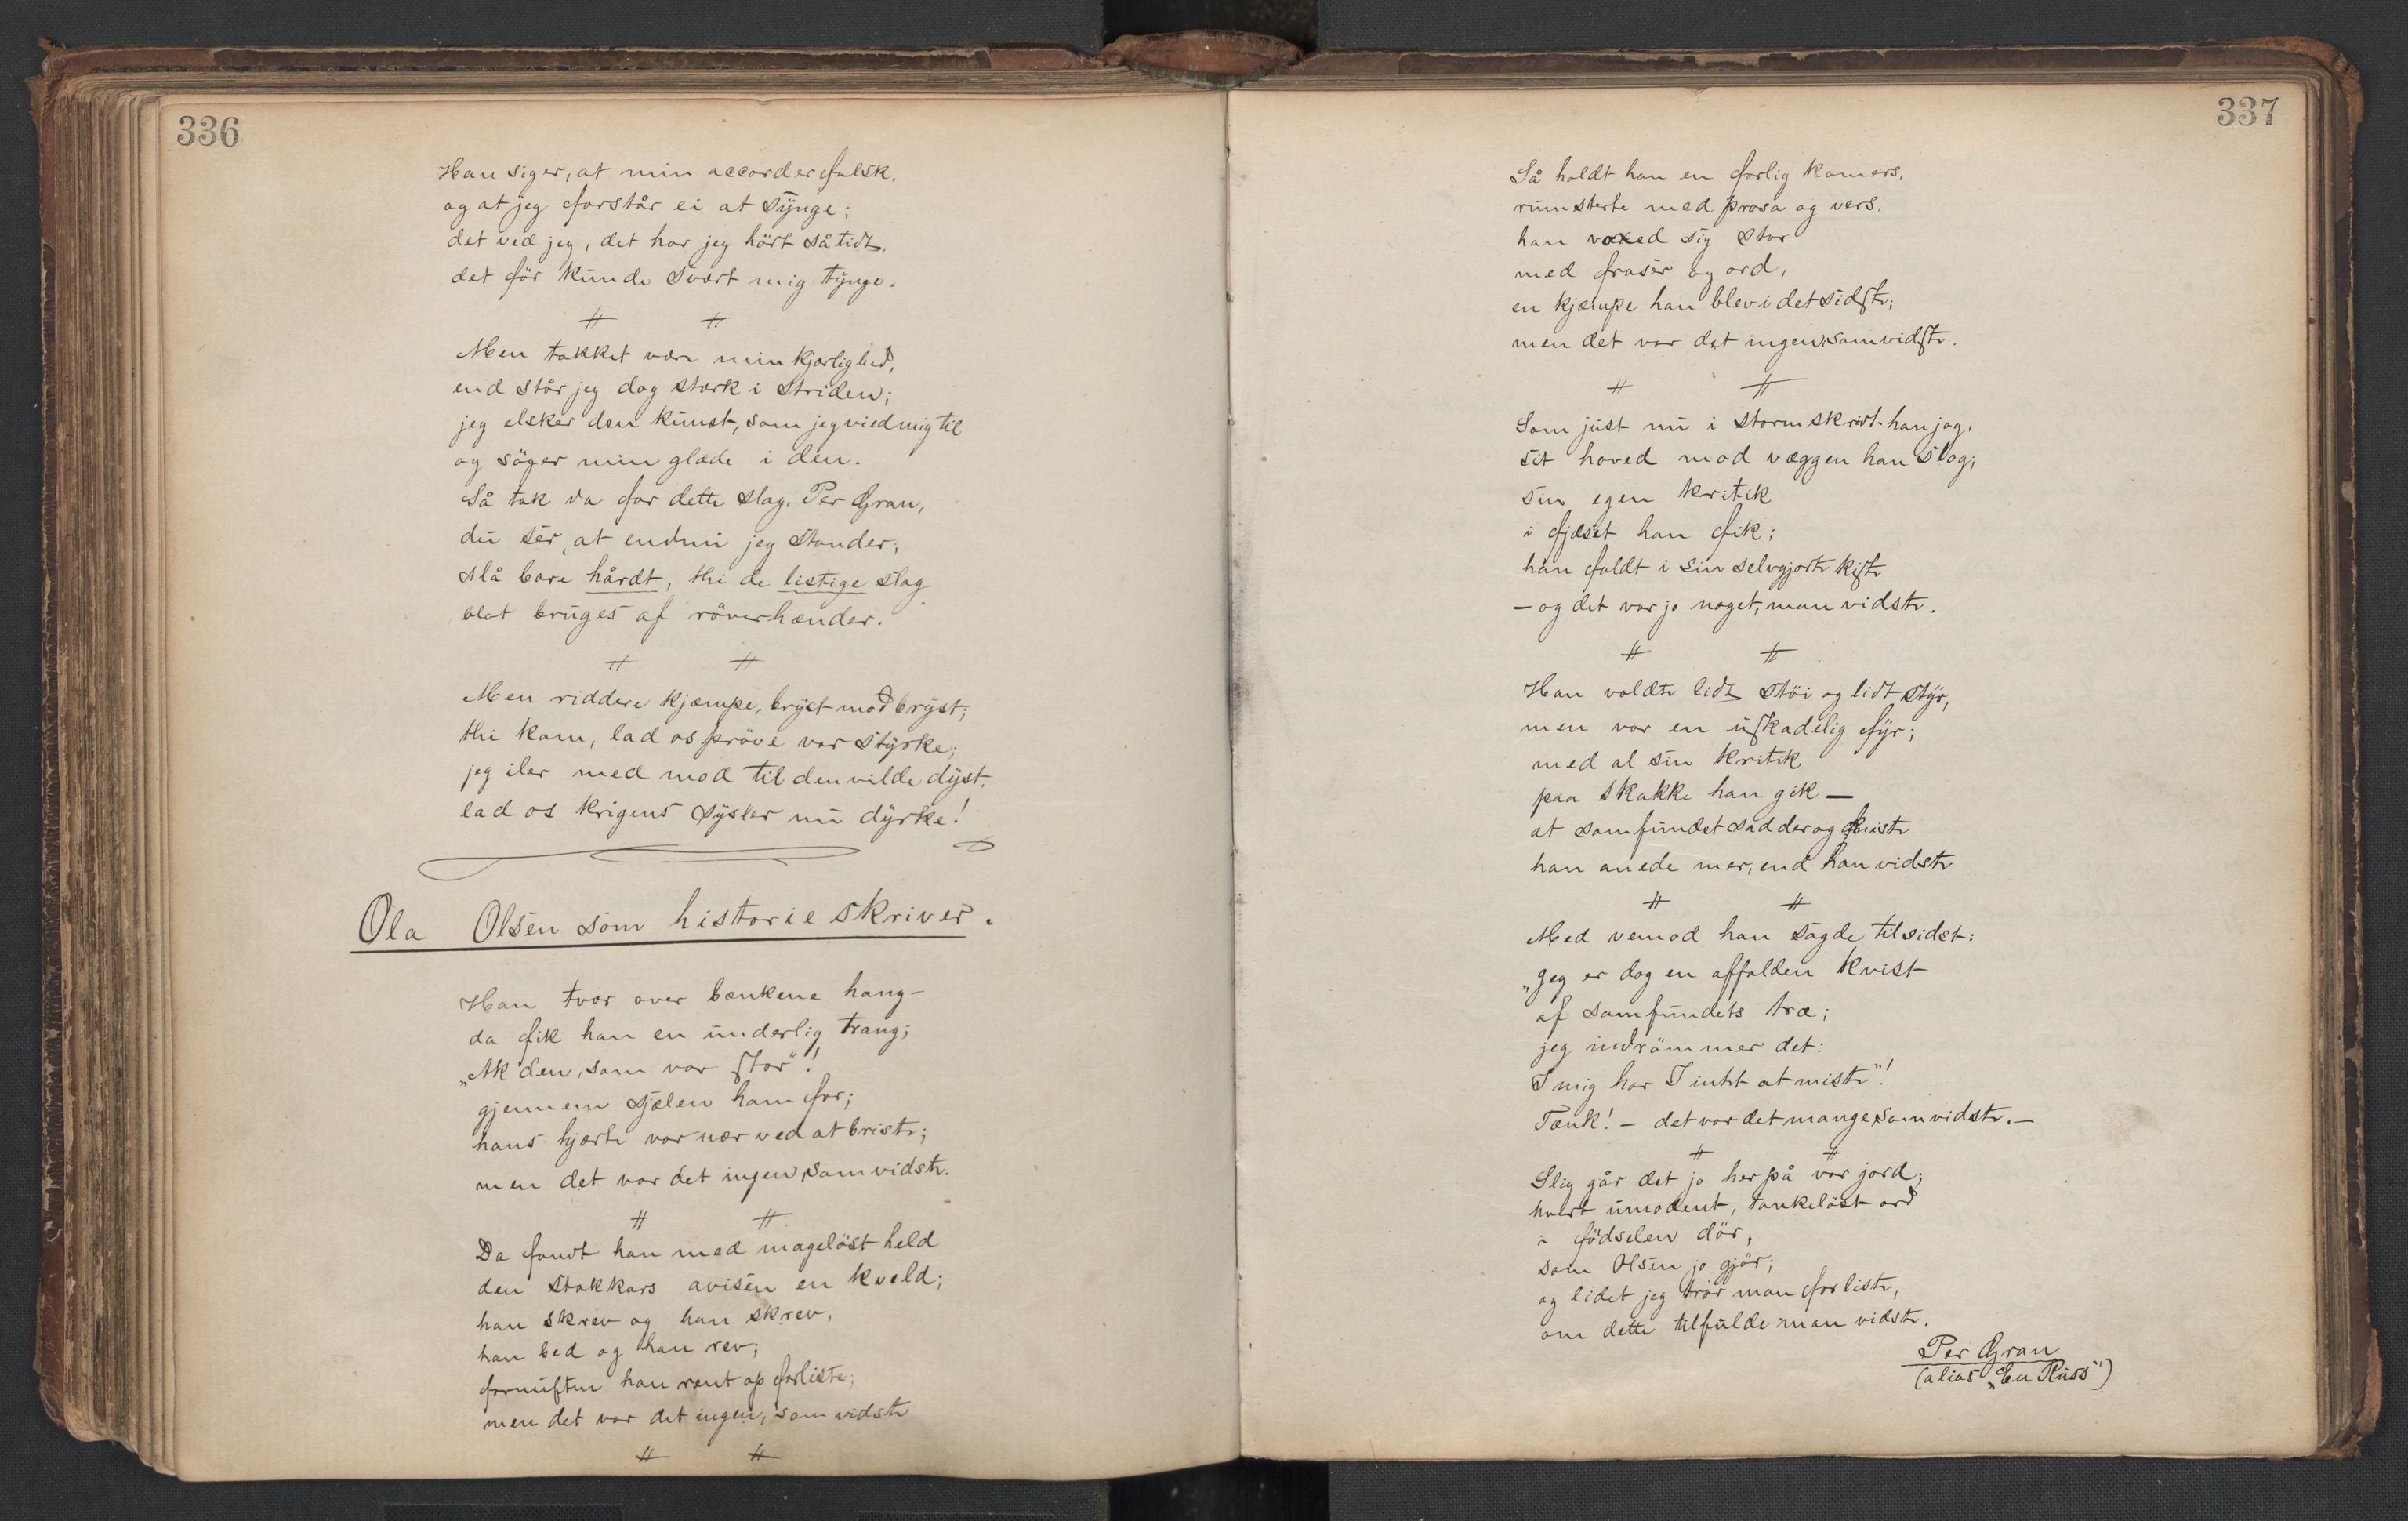 336
Han siger, at min accord er falsk,
og at jeg forstår ei at synge;
det ved jeg, det har jeg hört så tidt,
det för kunde svært mig tynge.
# #
Men takket være min kjærlighed,
end står jeg dog stærk i striden;
jeg elsker den kunst, som jeg vied mig til
og söger min glæde i den.
Så tak da for dette slag, Per Gran,
du ser, at endnu jeg stander;
slå bare hårdt, thi de listige slag
blot bruges af röverhænder.
# #
Men riddere kjæmpe, bryst mod bryst;
thi kom, lad os pröve vor styrke;
jeg iler med mod til den vilde dyst,
lad os krigens sysler nu dyrke!
Ola Olsen som historieskriver.
Han tvær over bænkene hang –
da fik han en underlig trang;
„Ak den, som var stor"!
gjennem sjælen ham for;
hans hjærte var nær ved at briste;
men det var det ingen, som vidste.
# #
Da fandt han med mageløst held
den stakkars avisen en kveld;
han skrev og han skrev,
han bed og han rev;
fornuften han rent op forliste;
men det var det ingen, som vidste
# #
337
Så holdt han en farlig komers,
rumsterte med prosa og vers,
han voxed sig stor
med fraser og ord,
en kjæmpe han blev i det sidste;
men det var det ingen, som vidste.
# #
Som just nu i stormskridt han jog,
sit hoved mod væggen han slog;
sin egen kritik
i fjæset han fik;
han faldt i sin selvgjorte kiste
– og det var jo noget, man vidste.
# #
Han voldte lidt støi og lidt styr,
men var en uskadelig fyr;
med al sin kritik
paa skakke han gik –
at samfundet sad der og
han anede mer, end han vidste
# #
Med vemod han sagde tilsidst:
„Jeg er dog en affalden kvist
af samfundets træ;
jeg indrömmer det:
I mig har I intet at miste"!
Tænk! – det var det mange, som vidste. –
# #
Slig går det jo her på vor jord;
hvert umodent, tankelöst ord
i födselen dör,
som Olsen jo gjör;
og lidet jeg tror man forliste,
om dette tilfulde man vidste.
Per Gran
(alias „En Russ")